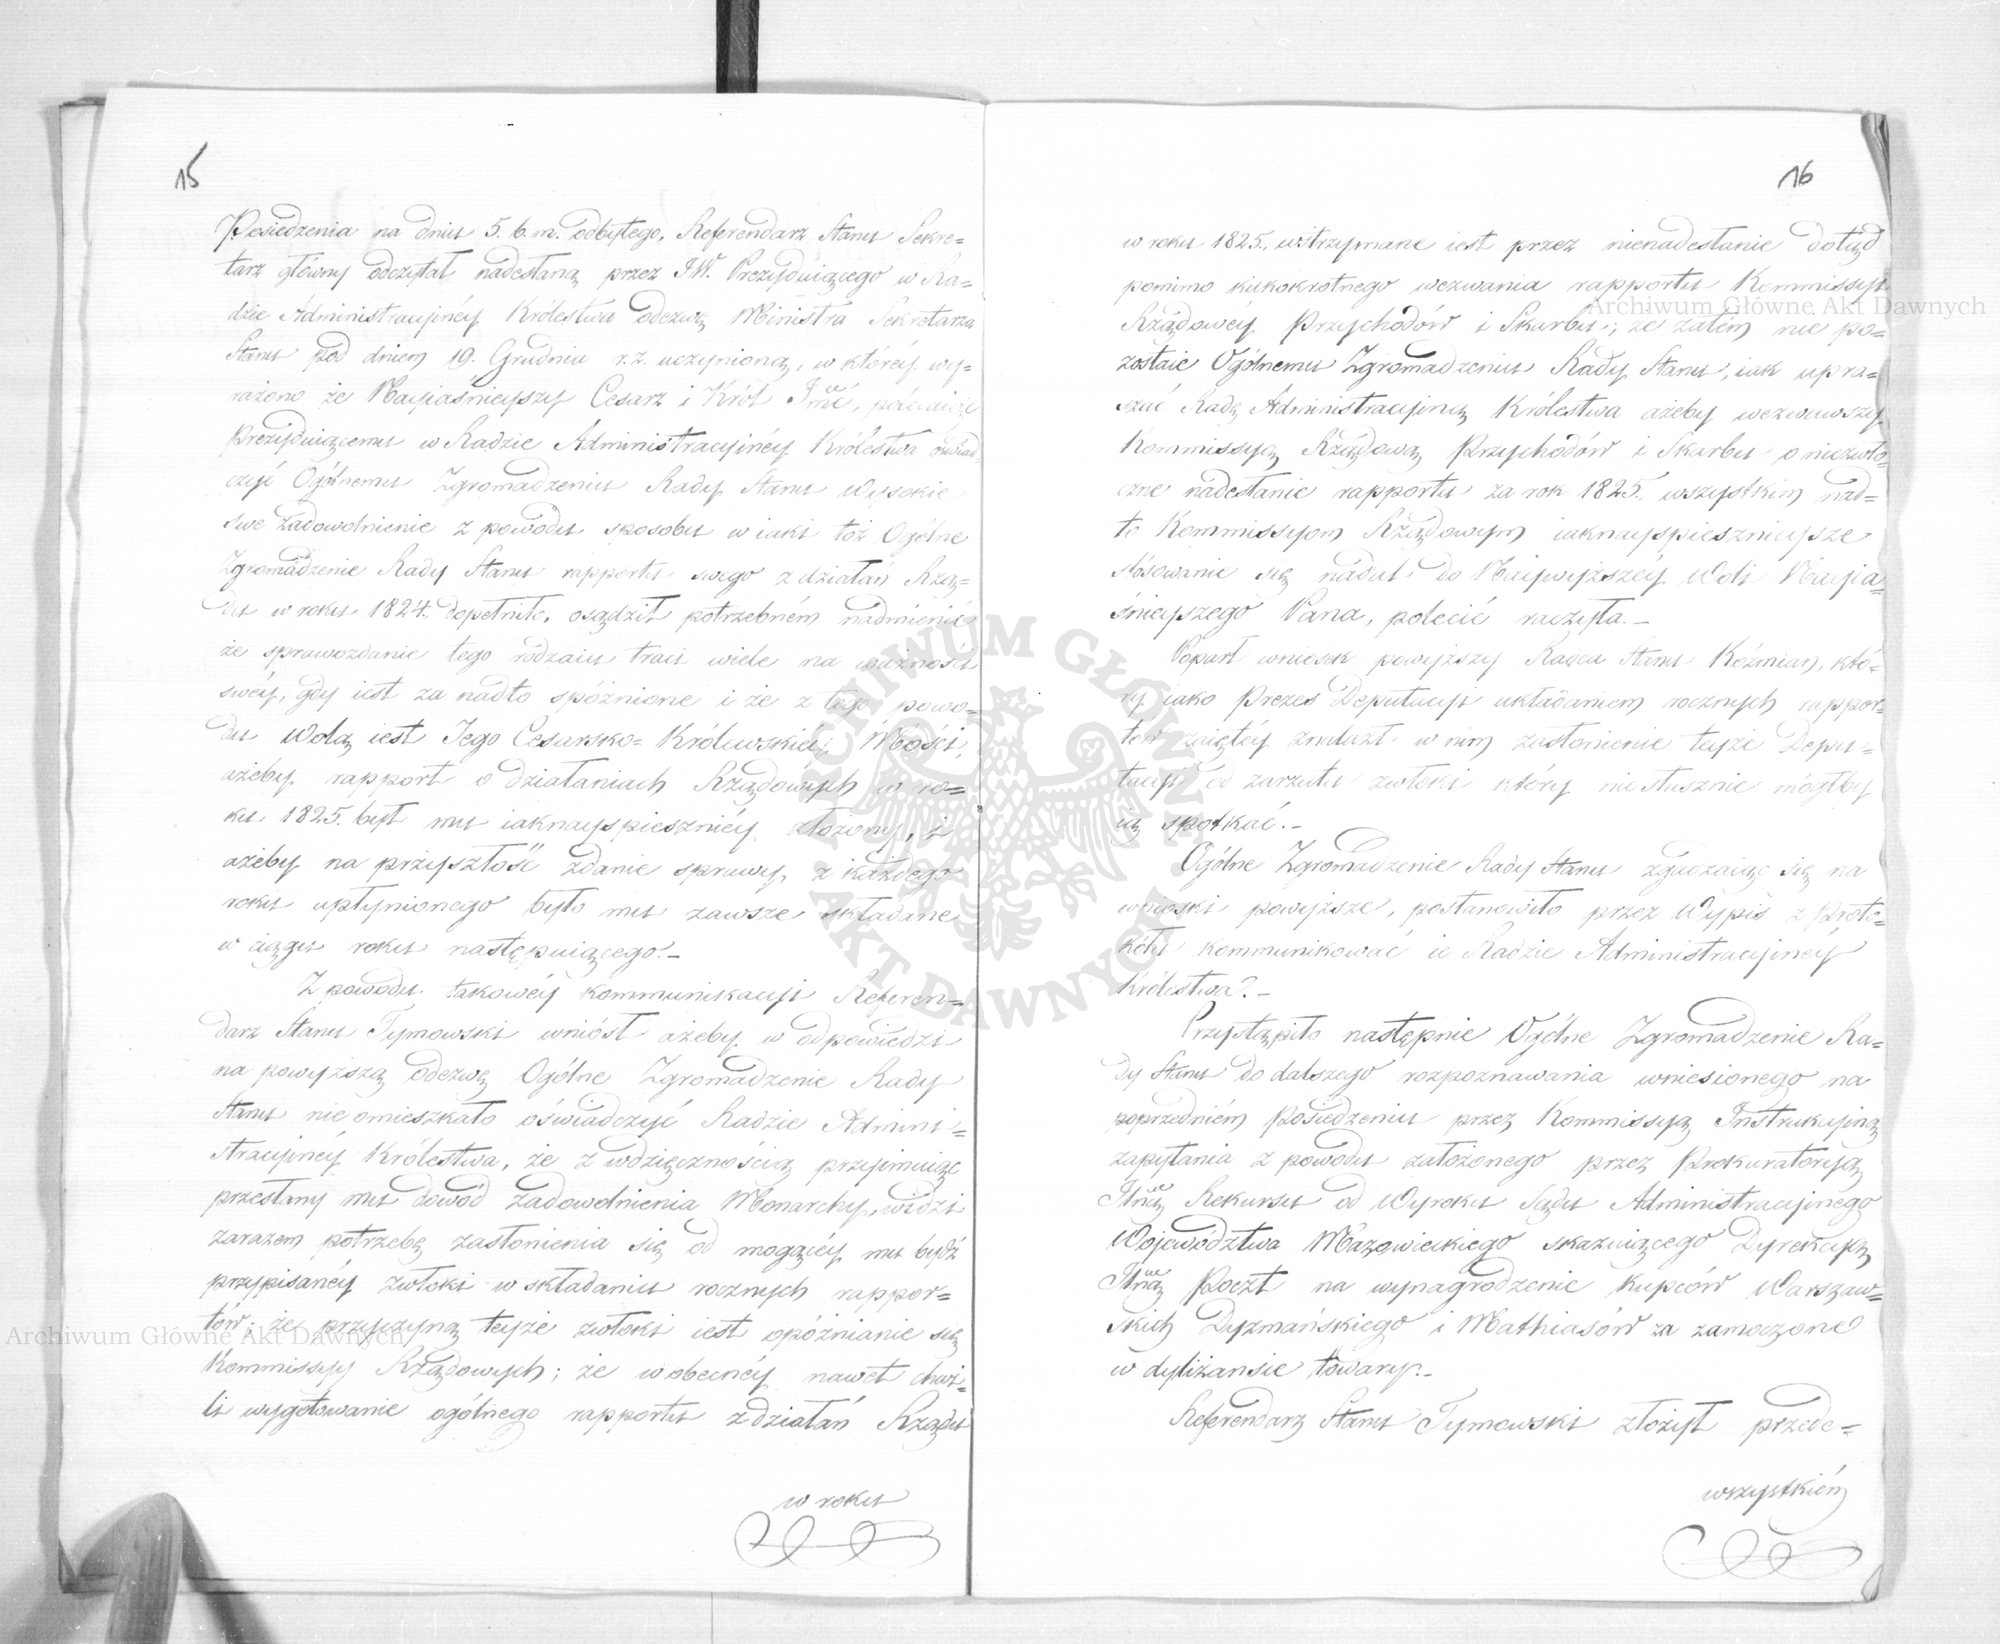 15
Posiedzenia na dniu 5. b. m. odbytego, Referendarz Stanu Sekre=
tarz główny odczytał nadesłaną przez JW. Prezyduiącego w Ra=
dzie Administracyinéy Królestwa odezwę Ministra Sekretarza
Stanu pod dniem 19. Grudnia r. z. uczynioną, w któréy wy=
rażono że Nayiaśnieyszy Cesarz i Król Jmć, poleciaiąc
Prezyduiącemu w Radzie Administracyinéy Królestwa oświad=
czyć Ogólnemu Zgromadzeniu Rady Stanu Wysokie
swe zadowolnienie z powodu sposobu w iaki toż Ogólne
Zgromadzenie Rady Stanu rapportu swego z działań Rzą=
du w roku 1824. dopełniło, osądził potrzebném nadmienić
że sprawozdanie tego rodzaiu traci wiele na ważności
swéy, gdy iest za nadto spóźnione i że z tego powo=
du Wolą iest Jego Cesarsko=Królewskiéy Mości,
ażeby rapport o działaniach Rządowych w ro=
ku 1825. był mu iaknayspieszniéy złożony, i
ażeby na przyszłość zdanie sprawy z każdego
roku upłynionego było mu zawsze składane
w ciągu roku następuiącego._
Z powodu takowéy kommunikacyi Referen=
darz Stanu Tymowski wniósł ażeby w odpowiedzi
na powyższą odezwę Ogólne Zgromadzenie Rady
Stanu nie omieszkało oświadczyć Radzie Admini=
stracyinéy Królestwa, że z wdzięcznością przyimuiąc
przesłany mu dowód zadowolnienia Monarchy, widzi
zarazem potrzebę zasłonienia się od mogącéy mu bydź
przypisanéy zwłoki w składaniu rocznych rappor=
tów; że przyczyną teyże zwłoki iest opóźnianie się
Kommissyy Rządowych; że w obecnéy nawet chwi=
li wygotowanie ogólnego rapportu z działań Rządu
w roku
16
w roku 1825. wstrzymane iest przez nienadesłanie dotąd
pomimo kilkokrotnego wezwania rapportu Kommissyi
Rządowéy Przychodów i Skarbu; że zatém nie po=
zostaie Ogólnemu Zgromadzeniu Rady Stanu, iak upra=
szać Radę Administracyiną Królestwa ażeby wezwawszy
Kommissyą Rządową Przychodów i Skarbu o niezwło=
czne nadesłanie rapportu za rok 1825. wszystkim nad=
to Kommissyom Rządowym iaknayspiesznieysze
stósowanie się nadal do Naywyższéy Woli Nayia=
śnieyszego Pana, polecić raczyła._
Poparł wniosek powyższy Radca Stanu Koźmian, któ=
ry iako Prezes Deputacyi układaniem rocznych rappor=
tów zaiętéy znalazł w nim zasłonienie teyże Depu=
tacyi od zarzutu zwłoki który niesłusznie mógłby
ią spotkać._
Ogólne Zgromadzenie Rady Stanu zgadzaiąc się na
wnioski powyższe, postanowiło przez Wypis z Proto=
kółu kommunikować ie Radzie Administracyinéy
Królestwa._
Przystąpiło następnie Ogólne Zgromadzenie Ra=
dy Stanu do dalszego rozpoznawania wniesionego na
poprzedniém Posiedzeniu przez Kommissyą Instrukcyiną
zapytania z powodu założonego przez Prokuratoryą
Jlną Rekursu od Wyroku Sądu Administracyinego
Województwa Mazowieckiego skazuiącego Dyrekcyą
Jlną Poczt na wynagrodzenie kupców Warszaw=
skich Dyzmańskiego i Mathiasów za zamoczone
w dyliżansie towary._
Referendarz Stanu Tymowski złożył przede=
wszystkiém
Archiwum Główne Akt Dawnych
Archiwum Główne Akt Dawnych
ARCHIWUM GŁÓWNE AKT DAWNYCH